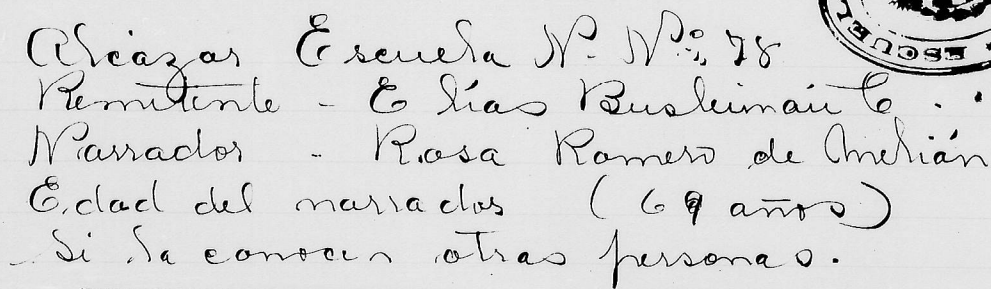 ESCUEL
Alcázar Escuela N. Nº; 78
Remitente - Elías
Narrador - Rosa Romero de
Edad del narrador (69 años)
Si la conocen otras personas.